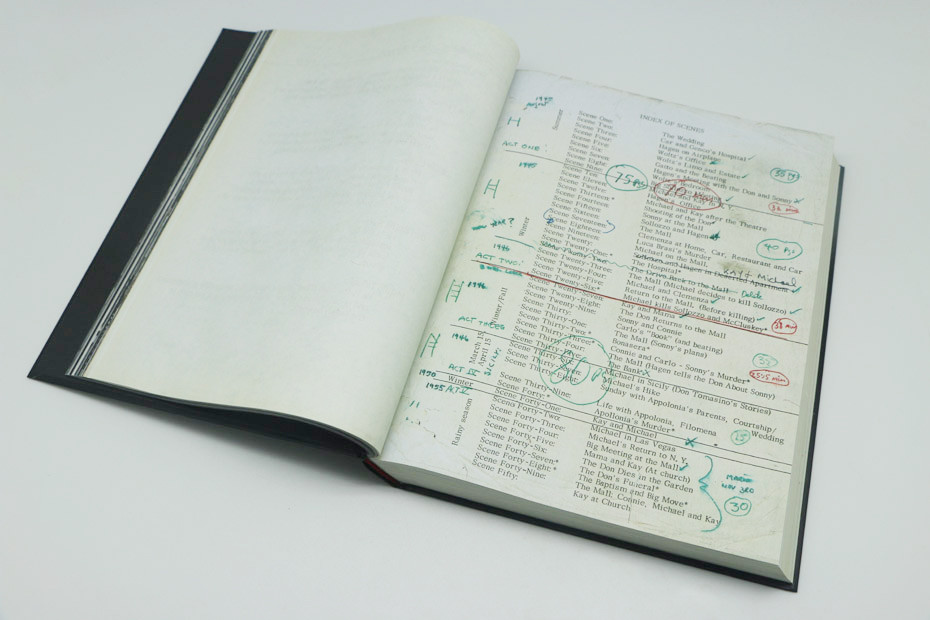 INDEX OF SCENES
1945
August
Summer
I
Scene One: The Wedding
Scene Two: Car and Genco's Hospital
Scene Three: Hagen on Airplane
Scene Four: Woltz's Office
Scene Five: Woltz's Limo and Estate
Scene Six: Gatto and the Beating
Scene Seven: Hagen's Meeting with the Don and Sonny
Scene Eight:
ACT ONE:
Scene Nine:
Scene Ten:
35
75
70
1945
II
Winter
Scene Eleven:
Scene Twelve: Office
Scene Thirteen* Michael and Kay after the Theatre
Scene Fourteen Shooting of the Don*
Scene Fifteen Sollozzo and Hagen
Scene Sixteen: Sonny at the Mall
Scene Seventeen: The Mall
Scene Eighteen: Clemenza at Home, Car, Restaurant and Car
Scene Nineteen: Luca Brasi's Murder
Scene Twenty: Michael on the Mall
Scene Twenty-One:*
Scene Twenty-Two: Sollozzo and Hagen in Deserted Apartment
Kay & Michael
Scene Twenty-Three: The Hospital*
Scene Twenty-Four: The Drive Back to the Mall Delete
Scene Twenty-Five: The Mall (Michael decides to kill Sollozzo)
Scene Twenty-Six:* Michael and Clemenza
Return to the Mall, (Before killing)
Michael kills Sollozzo and McCluskey*
40
1946
ACT TWO:
III
1946
Winter/Fall
Scene Twenty-Seven Kay and Mama
Scene Twenty-Eight: The Don Returns to the Mall
Scene Twenty-Nine: Sonny and Connie
Scene Thirty: Carlo's "Book" (and beating)
Scene Thirty-One: The Mall (Sonny's plans)
Scene Thirty-Two* Bonasera*
Scene Thirty-Three: Connie and Carlo - Sonny's Murder*
Scene Thirty-Four: The Mall (Hagen tells the Don About Sonny)
Scene Thirty-Five: The Bank
ACT THREE
IV
1946
March 15
April 15
Sicily
Scene Thirty-Six: Michael in Sicily (Don Tomasino's Stories)
Scene Thirty-Seven: Michael's Hike
Scene Thirty-Eight: Sunday with Appolonia's Parents, Courtship/
Wedding
Scene Thirty-Nine: Life with Appolonia, Filomena
Scene Forty:* Appolonia's Murder*
ACT IV
1950
Winter
Scene Forty-One: Kay and Michael
1955 ACT V
Rainy season
Scene Forty-Two: Michael in Las Vegas
Scene Forty-Three: Michael's Return to N.Y.
Scene Forty-Four: Big Meeting at the Mall
Scene Forty-Five: Mama and Kay (At church)
Scene Forty-Six: The Don Dies in the Garden
Scene Forty-Seven* The Don's Funeral*
Scene Forty-Eight* The Baptism and Big Move*
Scene Forty-Nine: The Mall: Connie, Michael and Kay
Scene Fifty: Kay at Church
30